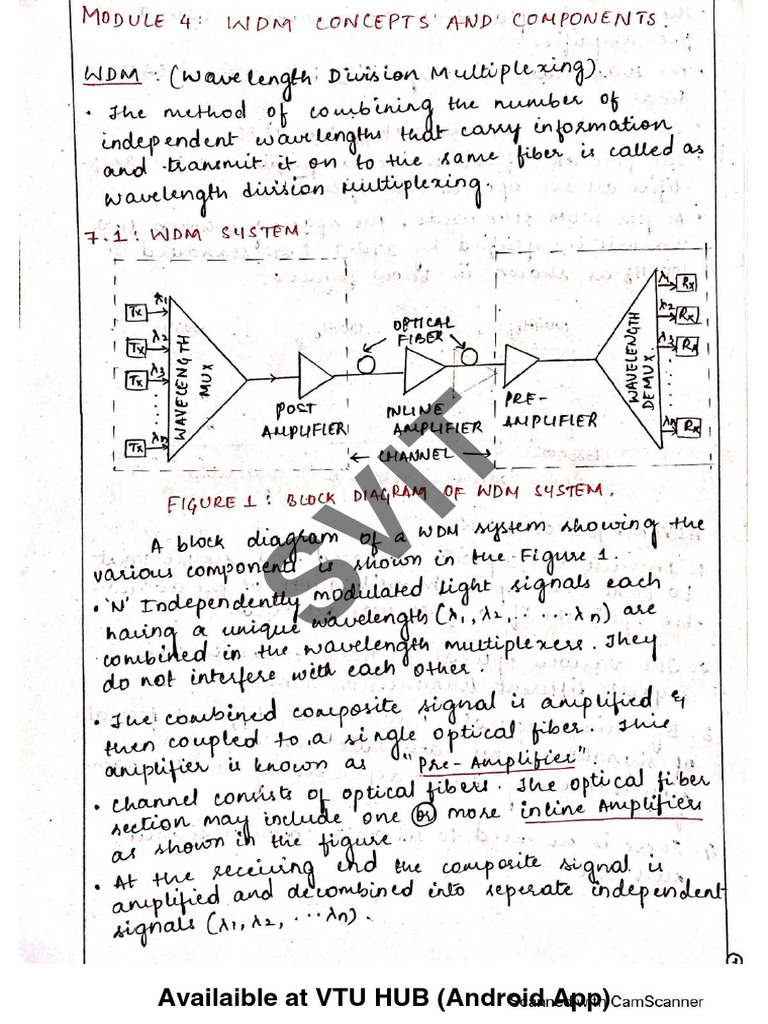 MODULE 4: WDM CONCEPTS AND COMPONENTS.
WDM: (Wavelength Division Multiplexing)
• The method of combining the number of
independent wavelengths that carry information
and transmit it on to the same fiber is called as
wavelength division Multiplexing.
7.1: WDM SYSTEM.
λ1 λ2 λ3 λn
Tx Tx Tx Tx
WAVELENGTH
MUX
POST
AMPLIFIER
OPTICAL
FIBER
INLINE
AMPLIFIER
← CHANNEL →
PRE-
AMPLIFIER
WAVELENGTH
DEMUX.
λ1 λ2 λ3 λn
Rx Rx Rx Rx
FIGURE 1: BLOCK DIAGRAM OF WDM SYSTEM.
A block diagram of a WDM system showing the
various components is shown in the Figure 1.
• 'N' Independently modulated light signals each
having a unique wavelength (λ1, λ2, ..... λn) are
combined in the wavelength multiplexers. They
do not interfere with each other.
• The combined composite signal is amplified &
then coupled to a single optical fiber. This
amplifier is known as "Pre-Amplifier".
• Channel consists of optical fibers. The optical fiber
section may include one or more inline Amplifiers
as shown in the figure.
• At the receiving end the composite signal is
amplified and decombined into seperate independent
signals (λ1, λ2, ... λn).
SVIT
1
Availaible at VTU HUB (Android App)
Scanned with CamScanner